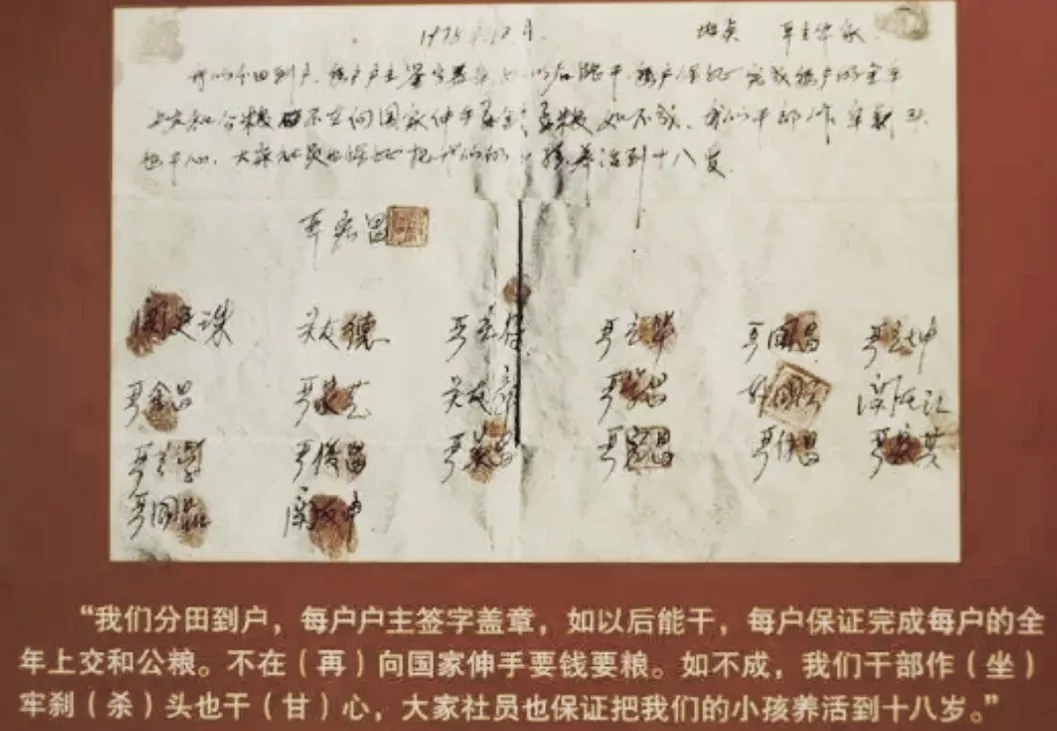 1978年12月. 地点 严立华家
我们分田到户,每户户主签字盖章,如以后能干,每户保证完成每户的全年
上交和公粮,不在向国家伸手要钱要粮,如不成,我们干部作牢刹头
也干心,大家社员也保证把我们的小孩养活到十八岁.
严宏昌
关廷珠 关友德 严立符 严立华 严国昌 严立坤
严金昌 严家芝 关友章 严学昌 韩国云 关友江
严立学 严俊昌 严美昌 严宏昌 严付昌 严家其
严国品 关友申
“我们分田到户，每户户主签字盖章，如以后能干，每户保证完成每户的全
年上交和公粮。不在（再）向国家伸手要钱要粮。如不成，我们干部作（坐）
牢刹（杀）头也干（甘）心，大家社员也保证把我们的小孩养活到十八岁。”